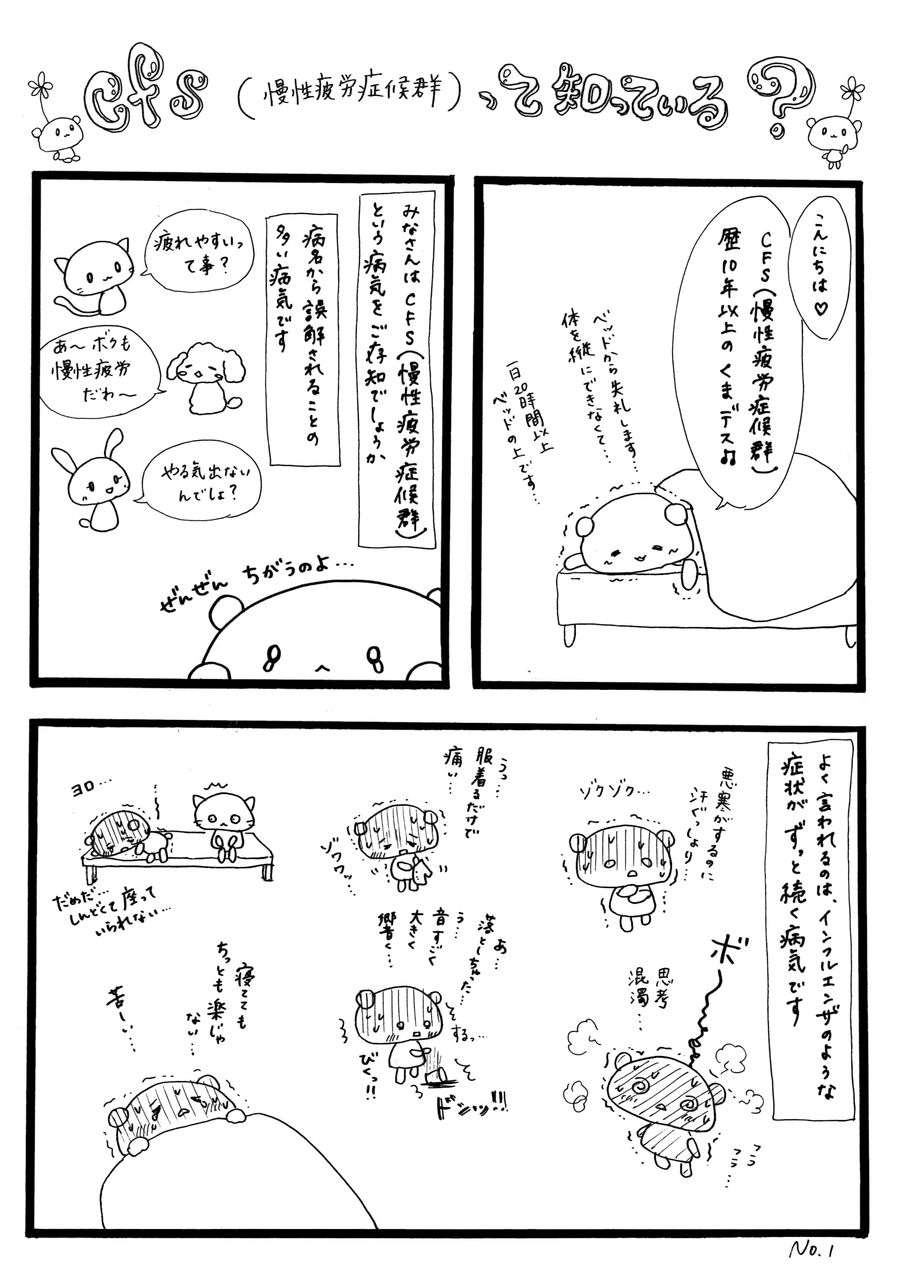 cfs（慢性疲労症候群）って知っている？
こんにちは♡
CFS（慢性疲労症候群）
歴10年以上のくまデス♫
ベッドから失礼します…
体を縦にできなくて…
一日20時間以上
ベッドの上です…
みなさんはCFS（慢性疲労症候群）
という病気をご存知でしょうか
病名から誤解されることの
多い病気です
疲れやすいっ
て事？
あ〜ボクも
慢性疲労
だわ〜
やる気出ない
んでしょ？
ぜんぜん ちがうのよ…
よく言われるのは、インフルエンザのような
症状がずっと続く病気です
悪寒がするのに
汗ぐっしょり…
ゾクゾク…
うっ…
服着るだけで
痛い…
ゾワワッ…
ヨロ…
だめだ…
しんどくて座って
いられない…
ボー
思考
混濁…
フラ
フラ…
あ…
落としちゃった…
う…
音すごく
大きく
響く…
するっ…
びくっ!!
ドンッ!!
寝てても
ちっとも楽じゃ
ない…
苦しい…
No.1